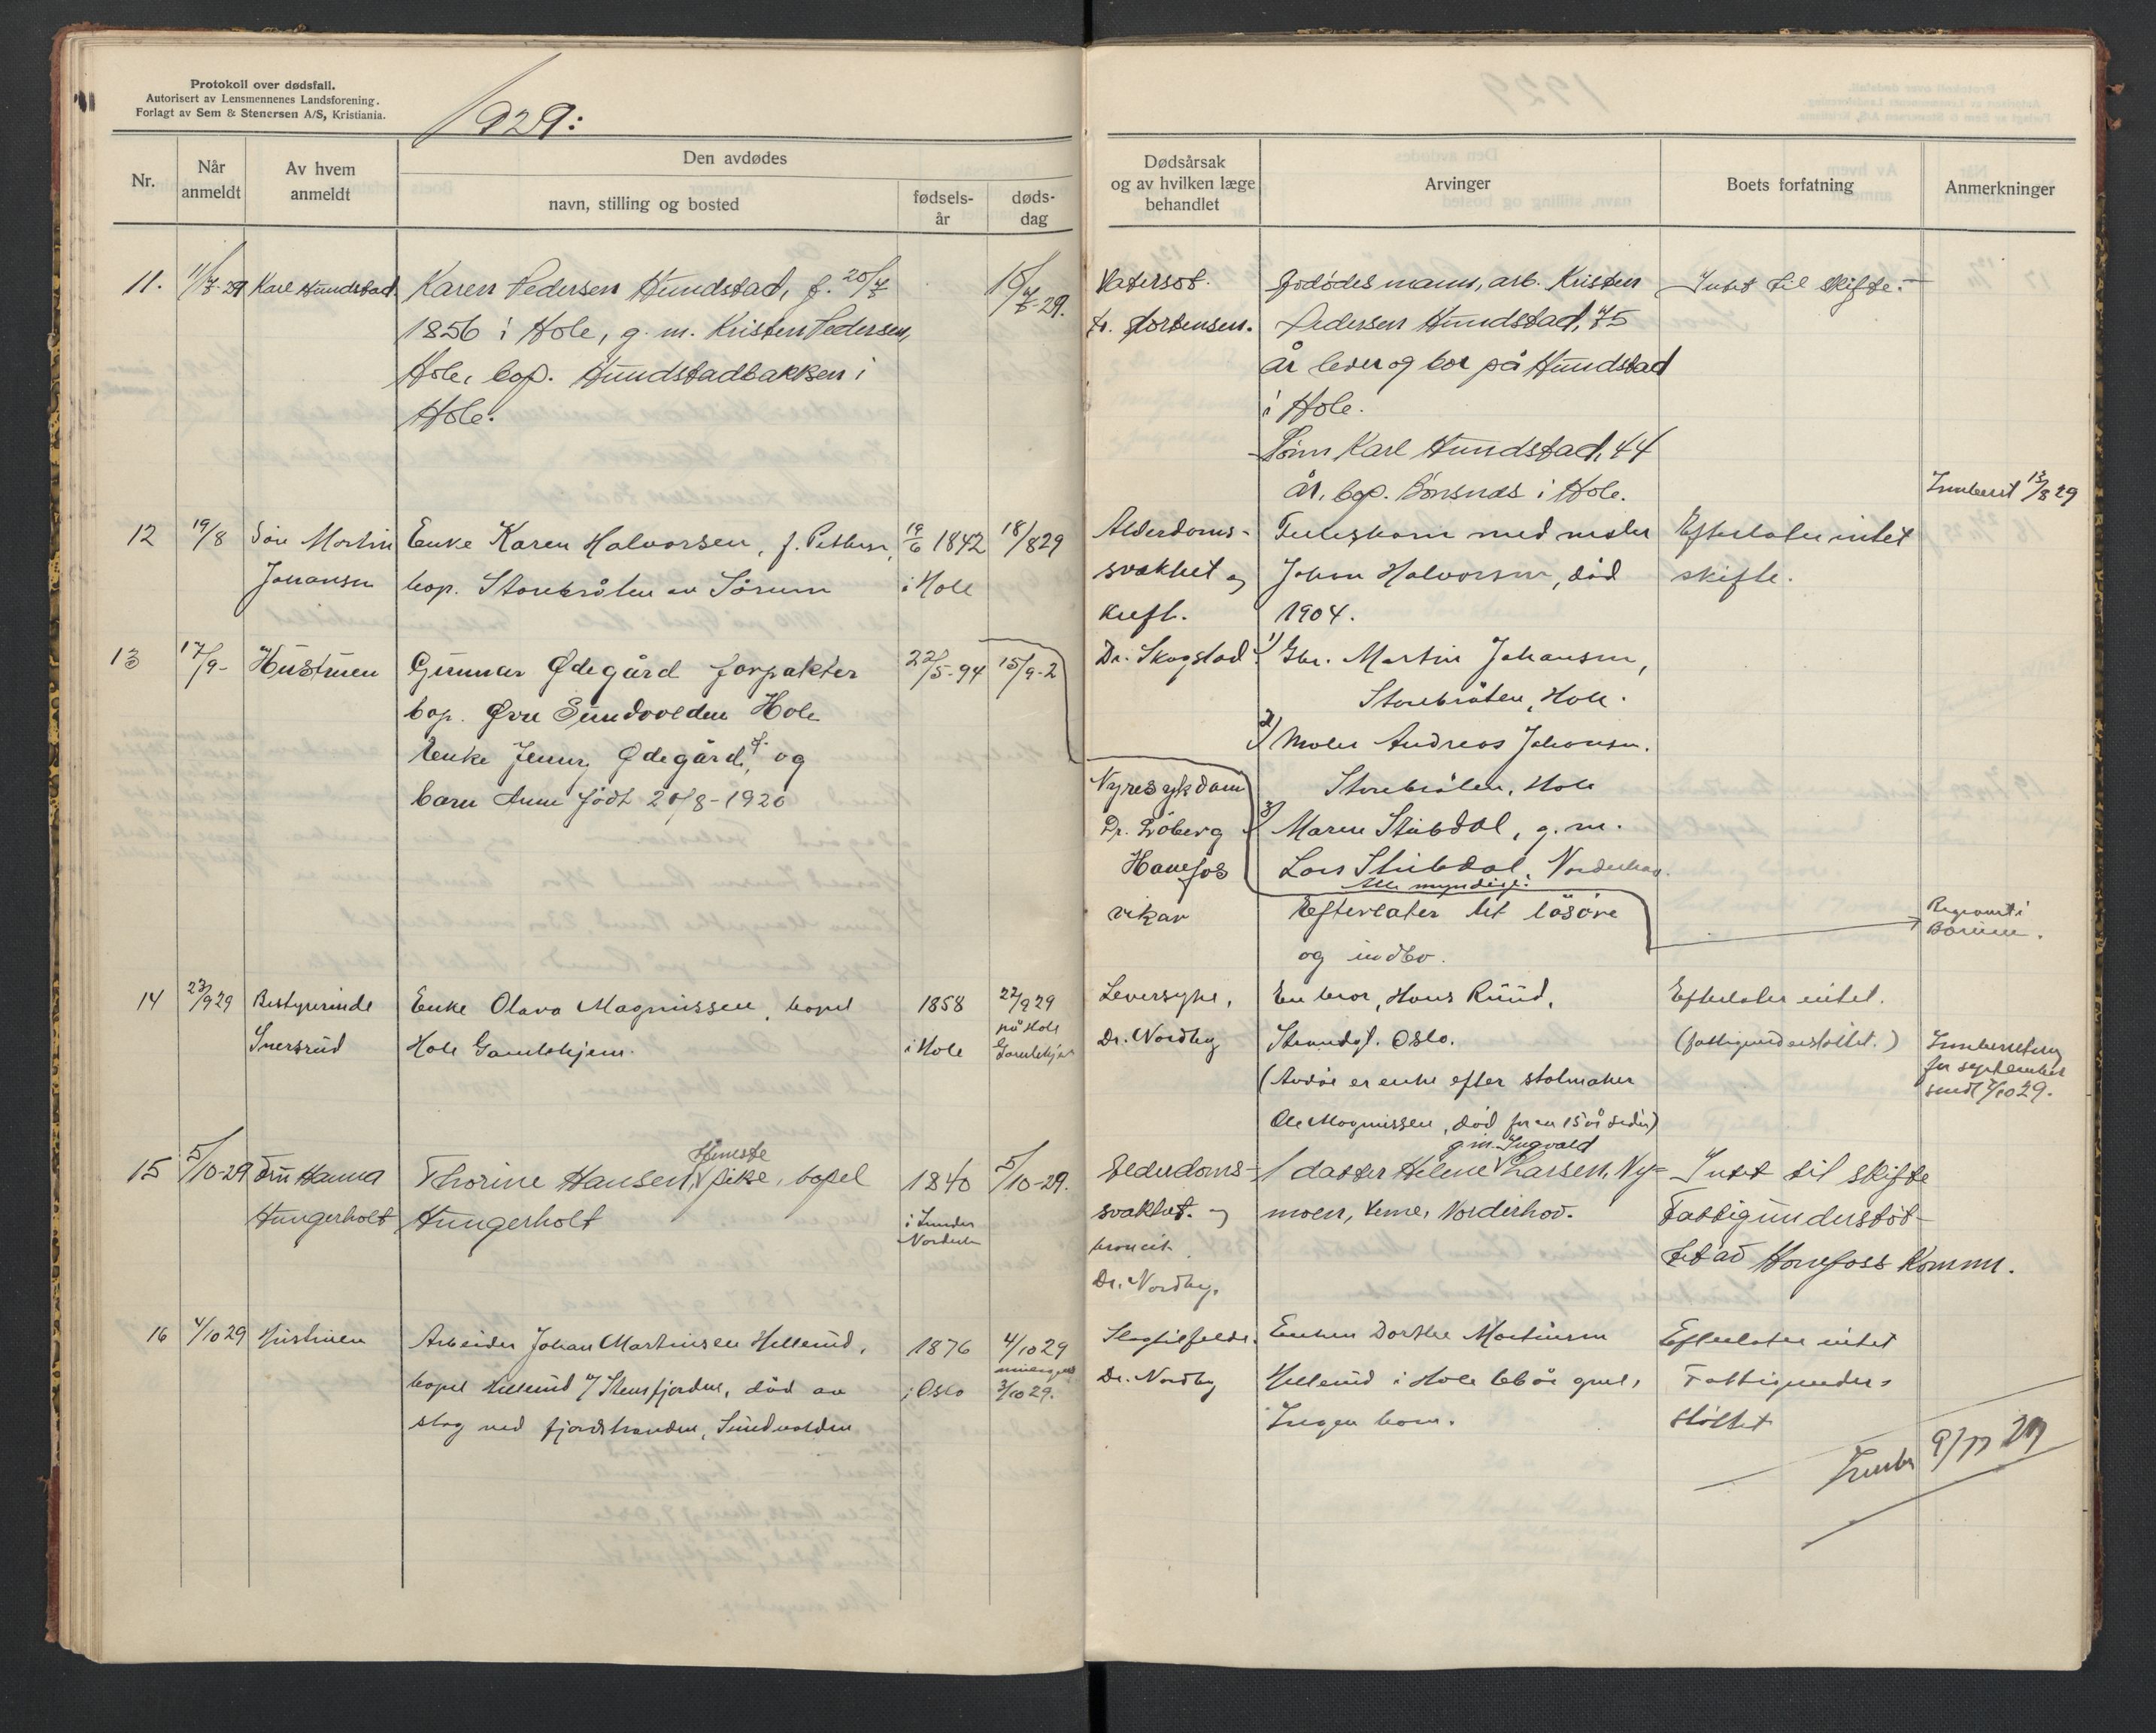 Protokoll over dødsfall.
Autorisert av Lensmennenes Landsforening.
Forlagt av Sem & Stenersen A/S, Kristiania.
1929:
Nr.
Når anmeldt
Av hvem anmeldt
Den avdødes
navn, stilling og bosted
fødsels-år
døds-dag
Dødsårsak
og av hvilken læge
behandlet
Arvinger
Boets forfatning
Anmerkninger
11.
11/7-29
Karl Hundstad.
Karen Pedersen Hundstad, f. 20/7
1856 i Hole, g. m. Kristen Pedersen,
Hole, bop. Hundstadbakken i
Hole.
10/7-29.
Vatersot.
Dr. Mortensen.
Godødes mann, arb. Kristen
Pedersen Hundstad, 75
år lever og bor på Hundstad
i Hole.
Sønn Karl Hundstad, 44
år, bop. Bønsnes i Hole.
Intet til skifte.-
Innberet 13/8 29
12
19/8
Søn Martin
Johansen
Enke Karen Halvorsen, f. Pettersen,
bop. Storebråten av Sørum
19/6 1842
i Hole
18/8 29
Alderdoms-
svakhet og
kreft.
Dr. Skogstad
med møler
Johan Halvorsen, død
1904.
1) Gbr. Martin Johansen,
Storebråten, Hole.
2) Møler Andreas Johansen.
Storebråten, Hole
3) Maren Stubdal, g. m.
Lars Stubdal, Norderhov.
Alle myndige.
Efterlater intet
skifte.
13
17/9-
Hustruen
Gunnar Ødegård forpakter
bop. Øvre Sundvolden Hole
Enke Jenny Ødegård, f. og
barn Anne født 28/8-1920
22/5-94
15/9-2
Nyresykdom
Dr. Løberg
Hønefos
vikar
Efterlater litt løsøre
og indbo.
Begravet i
Bærum.
14
23/9 29
Bestyrerinde
Snersrud
Enke Olava Magnussen, bopel
Hole Gamlehjem.
1858
i Hole
22/9 29
på Hole
Gamlehjem
Leversyke,
Dr. Nordby
En bror, Hans Ruud,
Strandgt. Oslo.
(Avdøe er enke efter stolmaker
Ole Magnussen, død for ca 15 år siden)
Efterlater intet.
(fattigunderstøttet.)
Innberetning
for september
sendt 7/10 29.
15
5/10-29
Fru Hanna
Hungerholt
Thorine Hansen, pike, bopel
Hungerholt
1840
i Lunder
5/10-29.
Alderdoms-
svakhet. og
bronkit.
Dr. Nordby.
gm. Ingvald
1 datter Helene Larsen, Ny-
moen, Veme, Norderhov.
Intet til skifte
Fattigunderstøt-
tet av Hønefoss Komm.
16
4/10 29
Hustruen
Arbeider Johan Martinsen Hellerud,
bopel Hellerud i/ Stensfjorden, død av
slag ved fjordstranden, Sundvolden
1876
i Oslo
4/10 29
3/10 29.
Slagtilfelde.
Dr. Nordby
Enken Dorthe Martinsen
Hellerud i Hole 66 år gml,
Ingen barn.
Efterlater intet
Fattigunder-
støttet
Innber 9/11 29